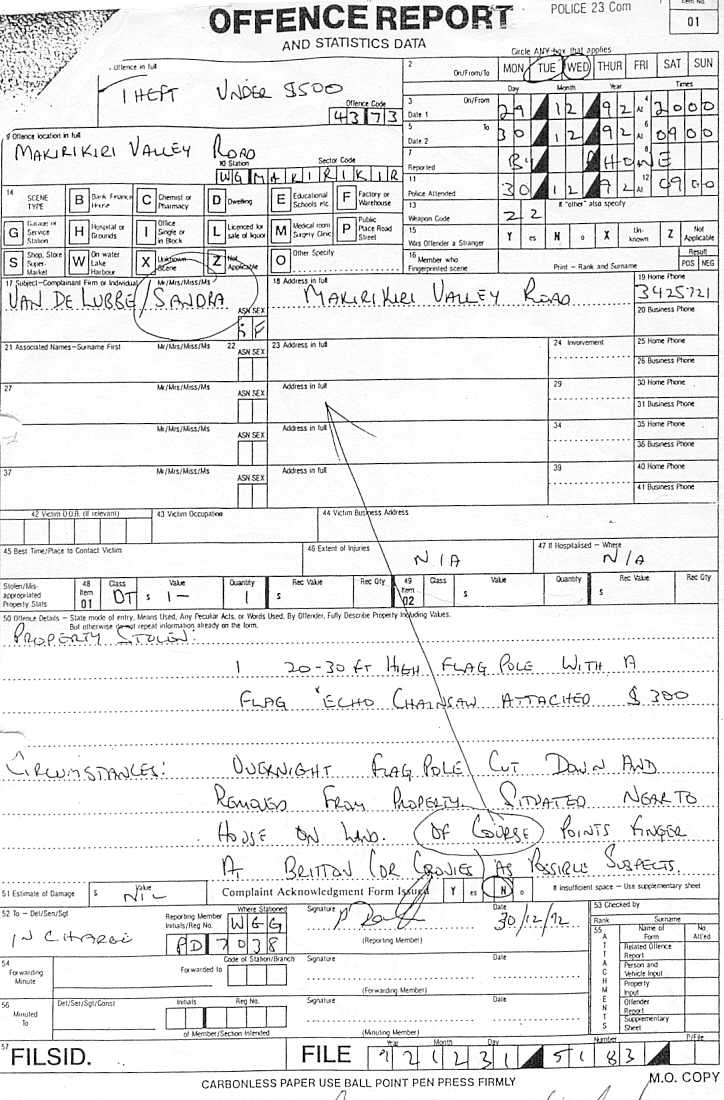 OFFENCE REPORT
AND STATISTICS DATA
POLICE 23 Com
Item No.
01
Circle ANY box that applies
Offence in full
THEFT UNDER $500
Offence Code
4373
2 On/From/To MON TUE WED THUR FRI SAT SUN
Day Month Year Times
3 On/From Date 1 29 12 92 At 4 2000
5 To Date 2 30 12 92 At 6 0900
7 Reported BY 8 PHONE
11 Police Attended 30 12 92 At 12 0900
9 Offence location in full
MAKIRIKIRI VALLEY ROAD
10 Station Sector Code
WG MAKIRIKIR
13 Weapon Code 22 If "other" also specify
14 SCENE TYPE
B Bank Finance House C Chemist or Pharmacy D Dwelling E Educational Schools etc. F Factory or Warehouse
G Garage or Service Station H Hospital or Grounds I Office Single or in Block L Licenced for sale of liquor M Medical room Surgery Clinic P Public Place Road Street
S Shop, Store Super-Market W On water Lake Harbour X Unknown Scene Z Not Applicable O Other Specify
15 Was Offender a Stranger Y es N o X Un-known Z Not Applicable
16 Member who Fingerprinted scene Print – Rank and Surname Result POS NEG
17 Subject–Complainant Firm or Individual Mr/Mrs/Miss/Ms
VAN DE LUBBE/SANDRA
ASN SEX
F
18 Address in full
MAKIRIKIRI VALLEY ROAD
19 Home Phone
3425721
20 Business Phone
21 Associated Names–Surname First Mr/Mrs/Miss/Ms 22 ASN SEX 23 Address in full 24 Involvement 25 Home Phone
26 Business Phone
27 Mr/Mrs/Miss/Ms ASN SEX Address in full 29 30 Home Phone
31 Business Phone
Mr/Mrs/Miss/Ms ASN SEX Address in full 34 35 Home Phone
36 Business Phone
37 Mr/Mrs/Miss/Ms ASN SEX Address in full 39 40 Home Phone
41 Business Phone
42 Victim D.O.B. (if relevant) 43 Victim Occupation 44 Victim Business Address
45 Best Time/Place to Contact Victim 46 Extent of Injuries N/A 47 If Hospitalised – Where N/A
Stolen/Mis-appropriated Property Stats 48 Item 01 Class DT Value $ 1– Quantity 1 Rec Value $ Rec Qty 49 Item 02 Class Value $ Quantity Rec Value $ Rec Qty
50 Offence Details – State mode of entry, Means Used, Any Peculiar Acts, or Words Used, By Offender, Fully Describe Property Including Values.
But otherwise do not repeat information already on the form.
PROPERTY STOLEN:
1 20-30 FT HIGH FLAG POLE WITH A
FLAG "ECHO CHAINSAW ATTACHED $300
CIRCUMSTANCES: OVERNIGHT FLAG POLE CUT DOWN AND
REMOVED FROM PROPERTY SITUATED NEAR TO
HOUSE ON LAND. OF COURSE POINTS FINGER
AT BRITTON (OR CRONIES) AS POSSIBLE SUSPECTS.
51 Estimate of Damage $ Value NIL Complaint Acknowledgment Form Issued Y es N o If insufficient space – Use supplementary sheet
52 To – Det/Sen/Sgt
IN CHARGE
Reporting Member Initials/Reg No. Where Stationed
WGG
PD 7038
Signature
(Reporting Member)
Date
30/12/92
53 Checked by
Rank Surname
54 Forwarding Minute Forwarded to Code of Station/Branch Signature (Forwarding Member) Date
55 ATTACHMENTS Name of Form No. Att'ed
Related Offence Report
Person and Vehicle Input
Property Input
Offender Report
Supplementary Sheet
56 Minuted To Det/Sen/Sgt/Const Initials Reg No. of Member/Section Intended Signature (Minuting Member) Date
57 FILSID. FILE Year Month Day Number P/File
921231 5183
CARBONLESS PAPER USE BALL POINT PEN PRESS FIRMLY
M.O. COPY